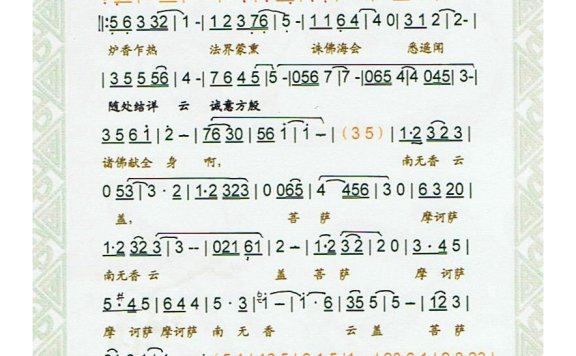 ‖:5 6 3 3 2 | 1 - | 1 2 3 7 6 | 5 - | 1 1 6 4 | 4 0 | 3 1 2 | 2 - |
炉香乍热 法界蒙熏 诛佛海会 悉遥闻
| 3 5 5 5 6 | 4 - | 7 6 4 5 | 5 - | 0 5 6 7 | 7 - | 0 6 5 4 | 4 0 4 5 | 3 - |
随处结详 云 诚意方殷
3 5 6 1 | 2 - | 7 6 3 0 | 5 6 1 | 1 - | ( 3 5 ) | 1·2 3 2 3 |
诸佛献全 身 啊, 南无香 云
0 5 3 | 3 · 2 | 1·2 3 2 3 | 0 0 6 5 | 4 4 5 6 | 3 0 | 6 3 2 0 |
盖, 菩 萨 摩诃萨
1·2 3 2 3 | 3 - - | 0 2 1 6 1 | 2 - | 1·2 3 2 | 2 0 | 3 · 4 5 |
南无香 云 盖 菩 萨 摩 诃萨
5 · #4 5 | 6 4 4 | 5 · 3 | 1 - | 1 · 6 | 3 5 5 | 5 - | 1 2 3 |
摩 诃萨 摩诃萨 南 无 香 云 盖 菩萨